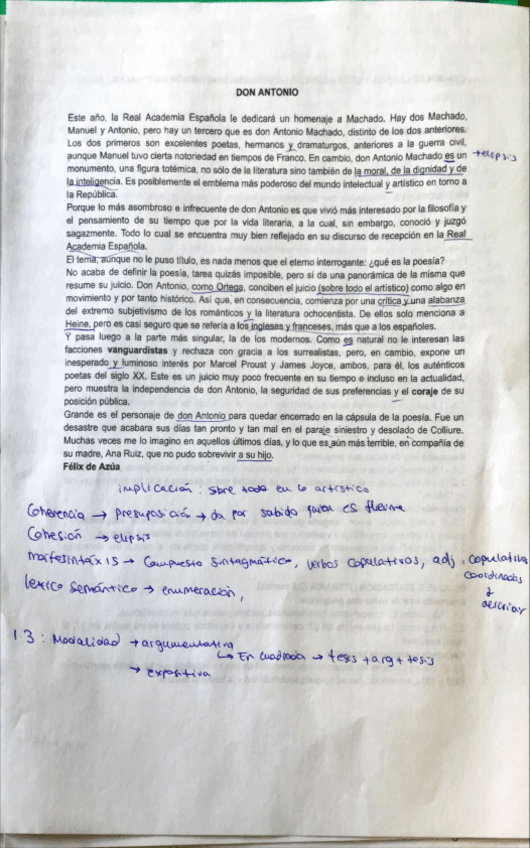 DON ANTONIO
Este año, la Real Academia Española le dedicará un homenaje a Machado. Hay dos Machado,
Manuel y Antonio, pero hay un tercero que es don Antonio Machado, distinto de los dos anteriores.
Los dos primeros son excelentes poetas, hermanos y dramaturgos, anteriores a la guerra civil,
aunque Manuel tuvo cierta notoriedad en tiempos de Franco. En cambio, don Antonio Machado es un → elipsis
monumento, una figura totémica, no sólo de la literatura sino también de la moral, de la dignidad y de
la inteligencia. Es posiblemente el emblema más poderoso del mundo intelectual y artístico en torno a
la República.
Porque lo más asombroso e infrecuente de don Antonio es que vivió más interesado por la filosofía y
el pensamiento de su tiempo que por la vida literaria, a la cual, sin embargo, conoció y juzgó
sagazmente. Todo lo cual se encuentra muy bien reflejado en su discurso de recepción en la Real
Academia Española.
El tema, aunque no le puso título, es nada menos que el eterno interrogante: ¿qué es la poesía?
No acaba de definir la poesía, tarea quizás imposible, pero sí da una panorámica de la misma que
resume su juicio. Don Antonio, como Ortega, conciben el juicio (sobre todo el artístico) como algo en
movimiento y por tanto histórico. Así que, en consecuencia, comienza por una crítica y una alabanza
del extremo subjetivismo de los románticos y la literatura ochocentista. De ellos solo menciona a
Heine, pero es casi seguro que se refería a los ingleses y franceses, más que a los españoles.
Y pasa luego a la parte más singular, la de los modernos. Como es natural no le interesan las
facciones vanguardistas y rechaza con gracia a los surrealistas, pero, en cambio, expone un
inesperado y luminoso interés por Marcel Proust y James Joyce, ambos, para él, los auténticos
poetas del siglo XX. Este es un juicio muy poco frecuente en su tiempo e incluso en la actualidad,
pero muestra la independencia de don Antonio, la seguridad de sus preferencias y el coraje de su
posición pública.
Grande es el personaje de don Antonio para quedar encerrado en la cápsula de la poesía. Fue un
desastre que acabara sus días tan pronto y tan mal en el paraje siniestro y desolado de Colliure.
Muchas veces me lo imagino en aquellos últimos días, y lo que es aún más terrible, en compañía de
su madre, Ana Ruiz, que no pudo sobrevivir a su hijo.
Félix de Azúa
implicación: sbre todo en lo artístico
Coherencia → presuposición → da por sabido quien es
Cohesión → elipsis
morfosintáxis → Compuesto sintagmático, verbos copulativos, adj. copulativa
coordinados
y
léxico semántico → enumeración,
1.3: Modalidad → argumentativa
↳ Encuadrada → tesis + arg + tesis
→ expositiva